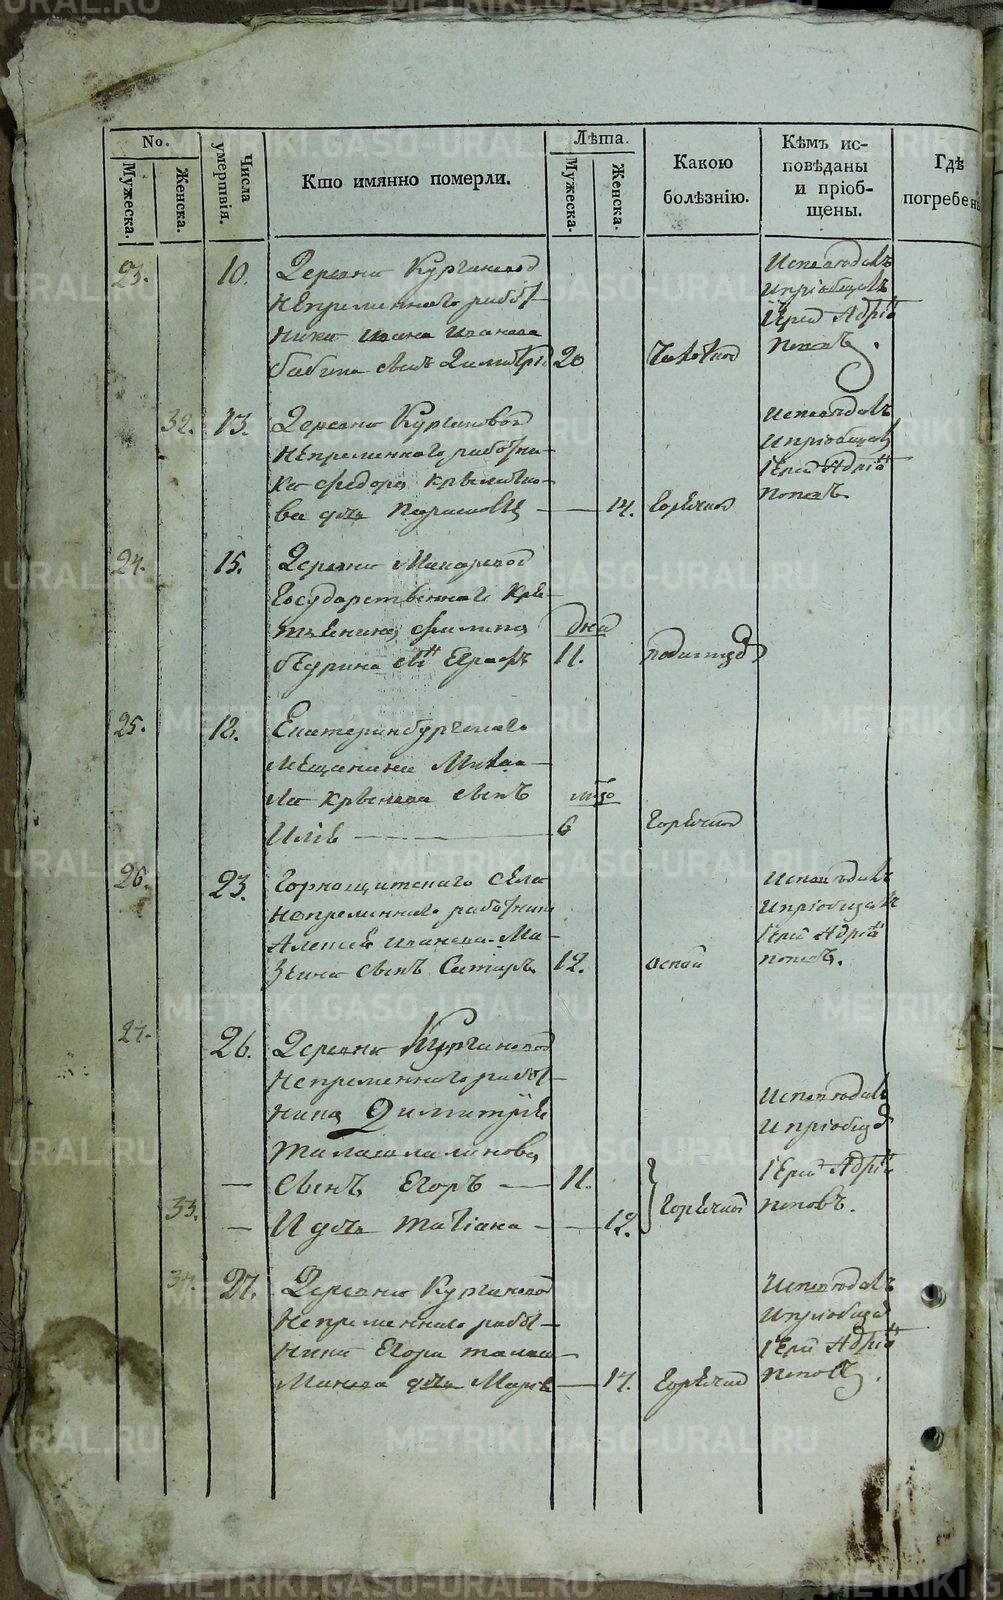 No.
Мужеска.
Женска.
Числа умертвія.
Кто имянно померли.
Лѣта.
Мужеска.
Женска.
Какою болѣзнію.
Кѣмъ ис-
повѣданы
и пріоб-
щены.
Гдѣ
погребен
23. 10. Деревни Кургановой
Непременнаго работ-
ника Ивана Иванова
Бабина сынъ Димитрі 20 Чахоткой
Исповѣдалъ
и пріобщалъ
Іерей Адріанъ
Поповъ.
32. 13. Деревни Кургановой
Непременнаго работни-
ка Федора
ва дочь 14. Горячкой
Исповѣдалъ
и пріобщалъ
Іерей Адріанъ
Поповъ.
24. 15. Деревни Макаровой
Государственнаго Кре-
стьянина Филипа дна
сынъ 11.
25. 18. Екатеринбургскаго
мѣщанина Михаи-
ла сынъ
6 Горячкой
26. 23. Горнощитскаго села
Непременнаго работника
Алексея Иванова Ма-
сынъ 12. оспой
Исповѣдалъ
и пріобщалъ
Іерей Адріанъ
Поповъ.
27. 26. Деревни Кургановой
Непременнаго работ-
ника Димитрія
Талашманова
— сынъ Егоръ — 11.
33. — и дочь Татіана — 12. Горячкой
Исповѣдалъ
и пріобщалъ
Іерей Адріанъ
Поповъ.
34. 27. Деревни Кургановой
Непременнаго работ-
ника Егора Талаш-
манова дочь Марья — 14. Горячкой
Исповѣдалъ
и пріобщалъ
Іерей Адріанъ
Поповъ.
METRIKI.GASO-URAL.RU